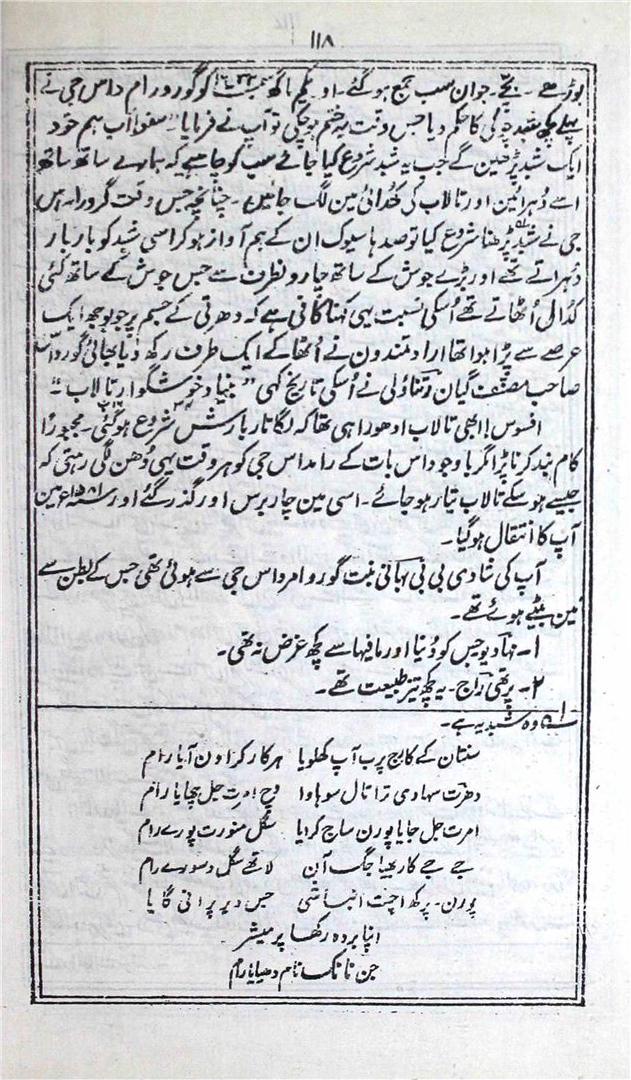 ۱۱۸
بوڑھے۔ بچے۔ جوان سب جمع ہو گئے۔ اور یکم ماگھ سمبت کو گورو رام داس جی نے
پہلے کچھ شبد چوکی کا حکم دیا جس وقت یہ ختم ہو چکی تو آپ نے فرمایا۔ سنو اب ہم خود
ایک شبد پڑھین گے جب یہ شبد شروع کیا جائے سب کو چاہیے کہ ہمارے ساتھ ساتھ
اسے دُہرائین اور تالاب کی کُھدائی مین لگ جائین۔ چنانچہ جس وقت گورو رام داس
جی نے شبد پڑھنا شروع کیا تو صدہا سیوک ان کے ہم آواز ہو کر اسی شبد کو بار بار
دُہراتے تھے اور بڑے جوش کے ساتھ چارو نطرف سے جس جوش کے ساتھ کئی
کُدالی اُٹھاتے تھے اُسکی نسبت یہی کہنا کافی ہے کہ دھرتی کے جسم پر جو بوجھ ایک
عرصے سے پڑا ہوا تھا ارادتمندون نے اُٹھا کے ایک طرف رکھ دیا بھائی گورداس
صاحب مصنف گیان رتناولی نے اُسکی تاریخ کہی "بنیاد خوشگوار تالاب"۔
افسوس! ابھی تالاب ادھورا ہی تھا کہ لگاتار بارش شروع ہو گئی۔ مجبوراً
کام بند کرنا پڑا مگر باوجود اس بات کے رامداس جی کو ہر وقت یہی دُھن لگی رہتی کہ
جیسے ہو سکے تالاب تیار ہو جائے۔ اسی مین چار برس اور گذر گئے اور سنہ ۱۵۸۱ء مین
آپ کا انتقال ہو گیا۔
آپ کی شادی بی بی بھانی بنت گورو امرداس جی سے ہوئی تھی جس کے بطن سے
تین بیٹے ہوئے تھے۔
۱۔ مہادیو جس کو دُنیا اور مافیہا سے کچھ غرض نہ تھی۔
۲۔ پرتھی راج۔ یہ کچھ تیز طبیعت تھے۔
وہ شبد یہ ہے۔
سنتان کے کارج پرب آپ کھلویا ہر کار کراون آیا رام
دھرت سہادی تراتال سوہاوا وچ امرت جل چھایا رام
امرت جل چھایا پورن ساج کرایا سگل منورت پورے رام
جے جے کار بھیا جگ آن لاتھے سگل وسورے رام
پورن۔ پرکھ اچت ابناشی جس وید پرانی گایا
اپنا بردہ رکھا پرمیشر
جن نانک نام دھیایا رام